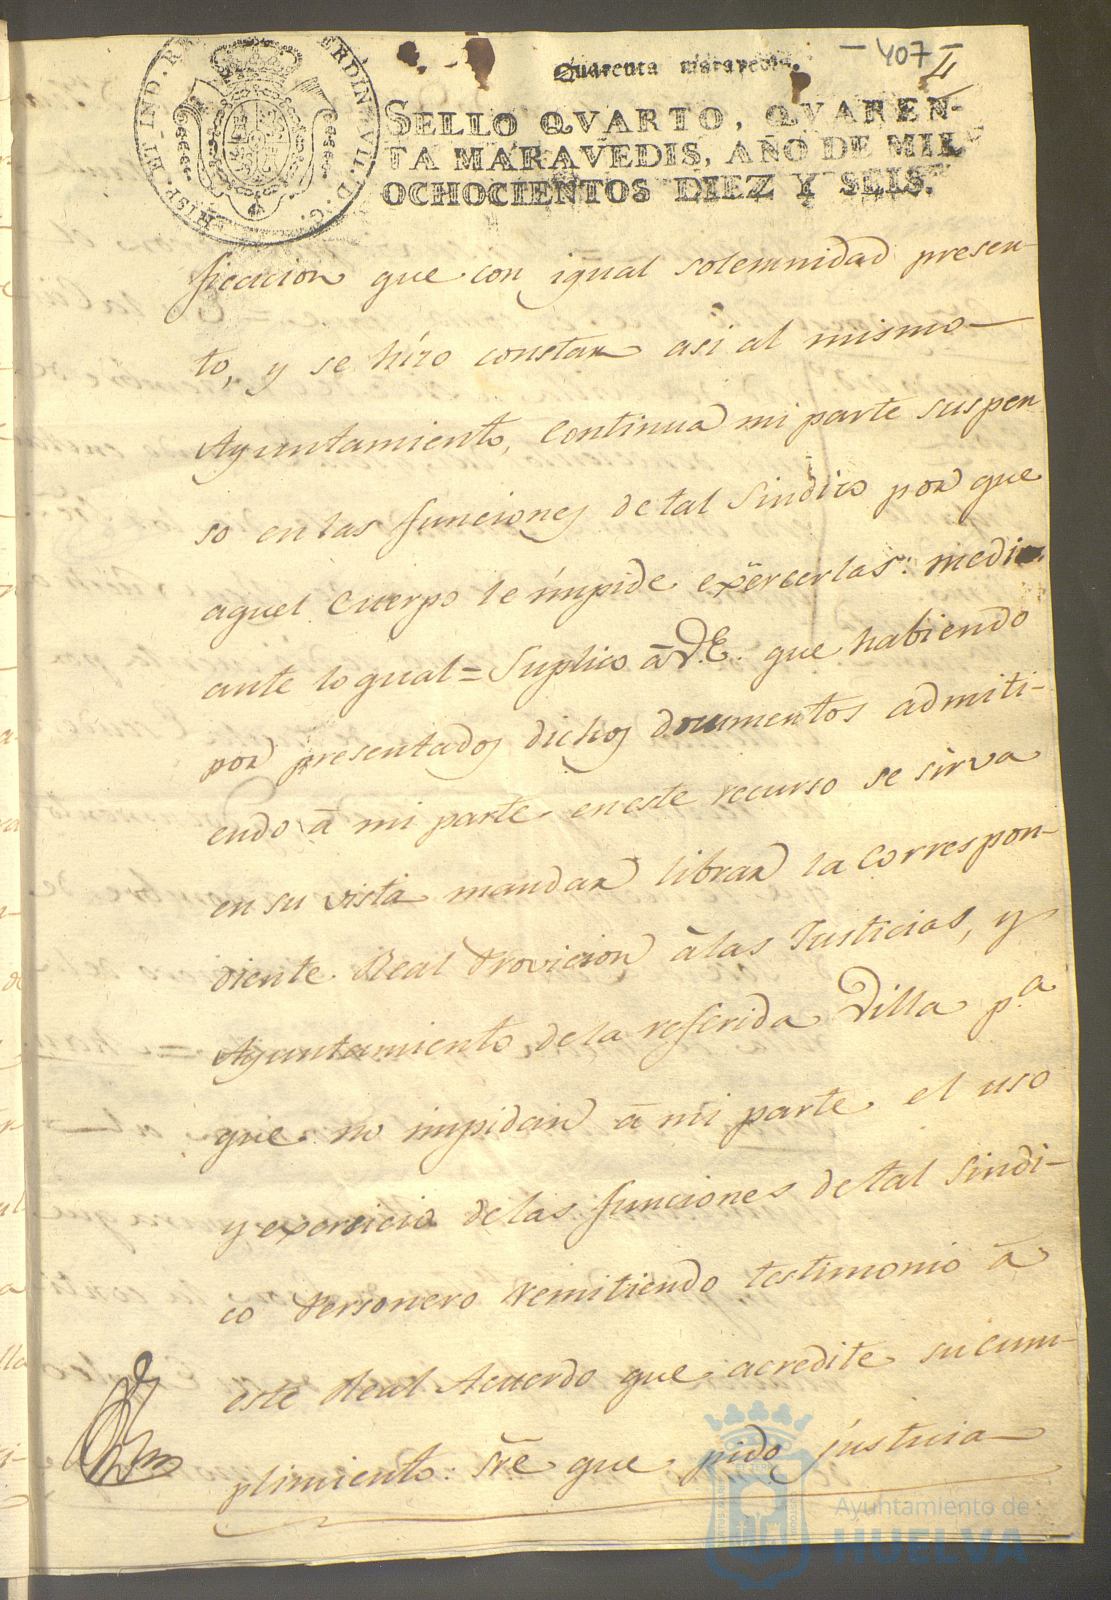 407
Quarenta maravedis.
HISP. ET IND. R
RDIN. VII. D. G.
SELLO QVARTO, QVAREN-
TA MARAVEDIS, AÑO DE MIL
OCHOCIENTOS DIEZ Y SEIS.
ficacion que con igual solemnidad presen-
to, y se hizo constar asi al mismo
Ayuntamiento, continua mi parte suspen
so en las funciones de tal Sindico por que
aquel Cuerpo le impide exercerlas: medi
ante lo qual = Suplico â V.E. que habiendo
por presentados dichos documentos admiti-
endo â mi parte en este recurso se sirva
en su vista mandar librar la correspon-
diente Real Provicion â las Justicias, y
Ayuntamiento de la referida Villa p.a
que no impidan â mi parte el uso
y exercicio de las funciones de tal Sindi-
co Personero remitiendo testimonio â
este Real Acuerdo que acredite su cum-
plimiento: Sre que pido justicia
Ayuntamiento de
HUELVA